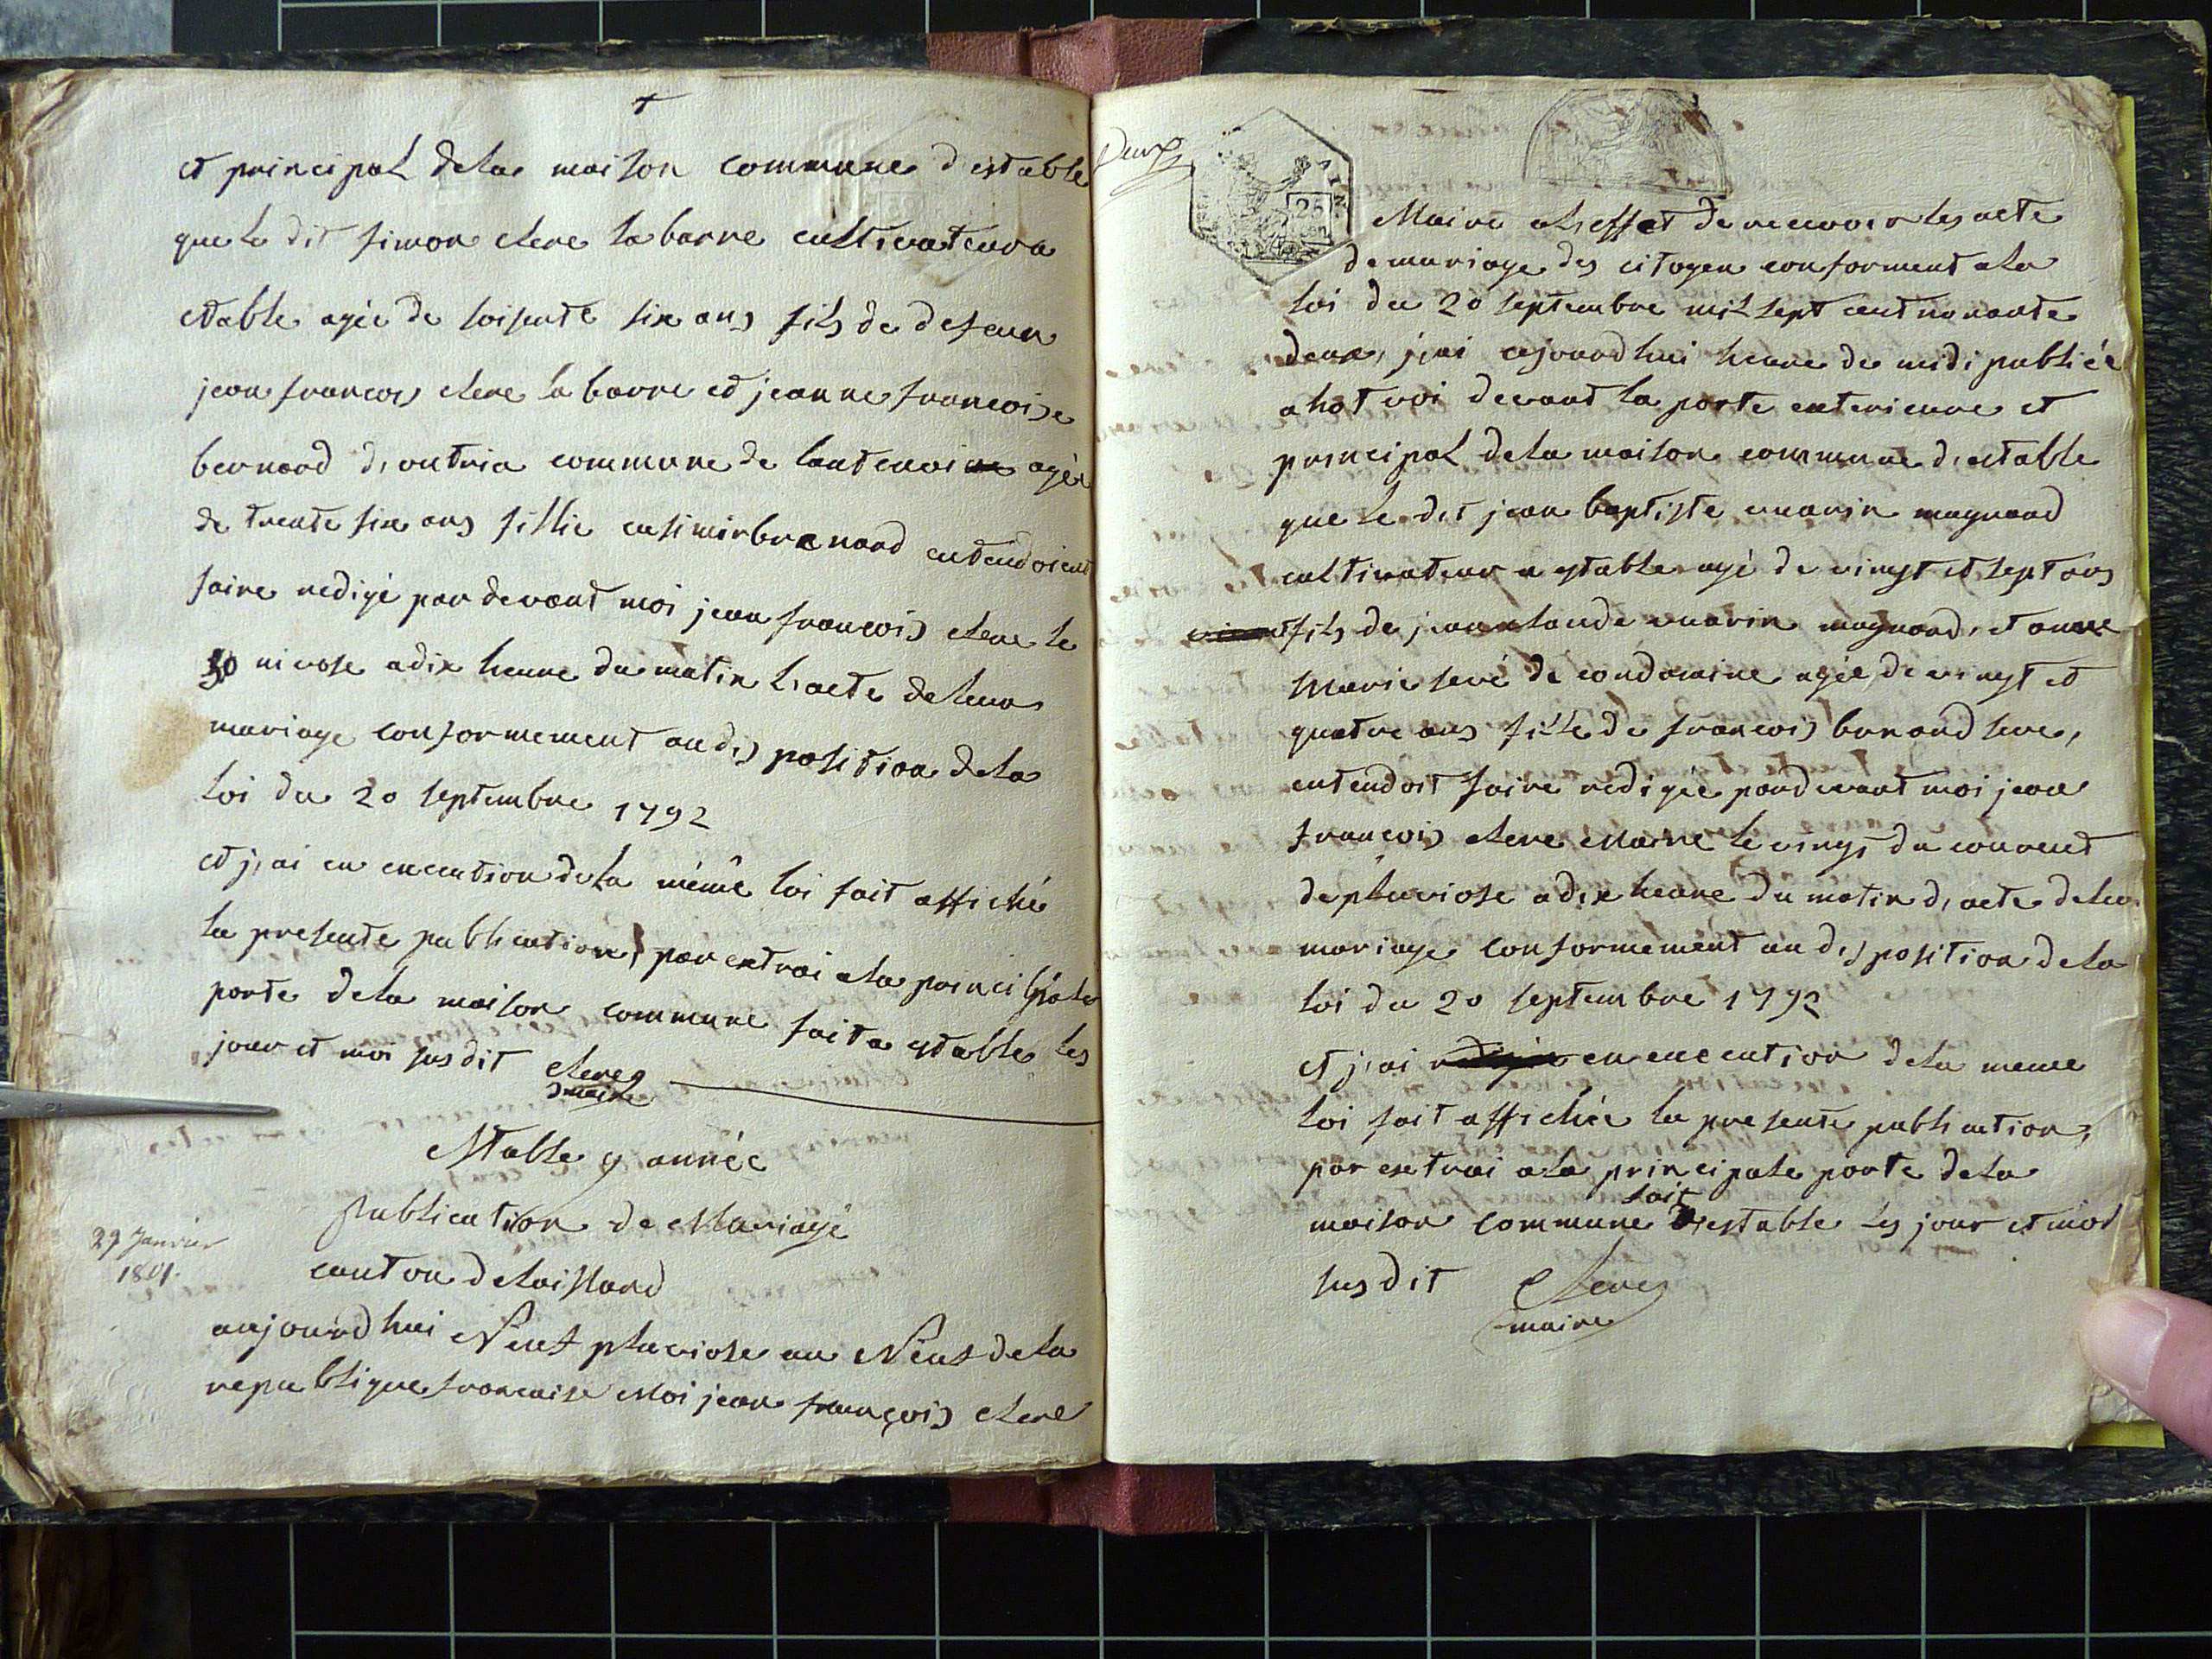 et principal dela maison commune d'estable
que le dit simon clerc la barre cultivateur a
etable agée de soisente six ans fils de defeun
jean francois clerc la barre et jeanne francoise
bernard d'outria commune de lantenoi agée
de trente six ans fillie casimir brenard entendoient
faire redigé par devant moi jean françois clerc le
30 nivose a dix heure du matin l'acte de leur
mariage conformement au disposition dela
loi du 20 septembre 1792
et j'ai en execution dela même loi fait affiché
la presente publication par extrai ala principale
porte dela maison commune fait a estable les
jour et moi susdit clerc
maire
Etable 9 année
publication de Mariagé
29 Janvier
1801.
canton de loissard
aujourd hui Neuf pluviose an Neuf dela
republique francaise Moi jean françois clerc
Deux
AIN
25
Maire al'effet de recevoir les acte
de mariage des citoyen conforment ala
loi du 20 septembre mil sept cent nonante
deux, j'ai aujourdhui heure de midi publiée
a hot voi devant la porte exterieure et
principal dela maison commune d'estable
que le dit jean baptiste marin magnard
cultivateur a estable agé de vingt et sept ans
fils de jean claude marin magnard, et anne
Marie seve de condamine agée de vingt et
quatre ans fille de francois bernard seve,
entendoit faire redigée pardevant moi jean
françois clerc Maire le vingt du courent
de pluviose a dix heure du matin d'acte de leur
mariage conformement au disposition dela
loi du 20 septembre 1792
et j'ai en execution dela meme
loi fait affichée la presente publication,
par extrai ala principale porte dela
maison commune fait estable les jour et moi
susdit Clerc
maire